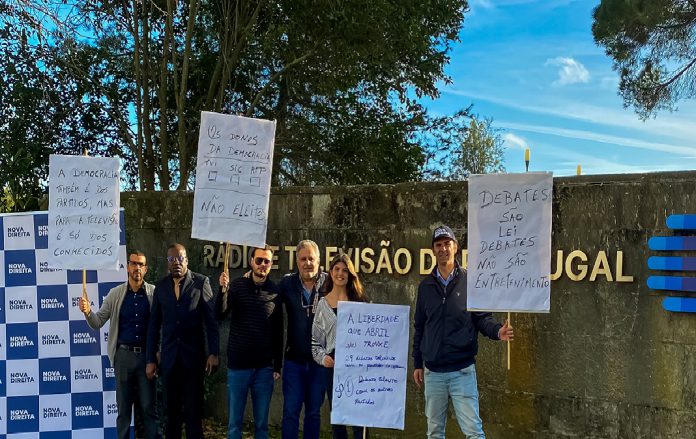 A DEMOCRACIA
TAMBÉM É DOS
PARTIDOS, MAS
PARA A TELEVISÃO
É SÓ DOS
CONHECIDOS
OS DONOS
DA DEMOCRACIA
TVI SIC RTP
NÃO ELEITOS
DEBATES
SÃO
LEI
DEBATES
NÃO SÃO
ENTRETENIMENTO
RÁDIO E TELEVISÃO DE PORTUGAL
A LIBERDADE
QUE ABRIL
NOS TROUXE
DEBATE
COM OS
PARTIDOS
NOVA
DIREITA
NOVA
DIREITA
NOVA
DIREITA
NOVA
DIREITA
NOVA
DIREITA
NOVA
DIREITA
NOVA
DIREITA
NOVA
DIREITA